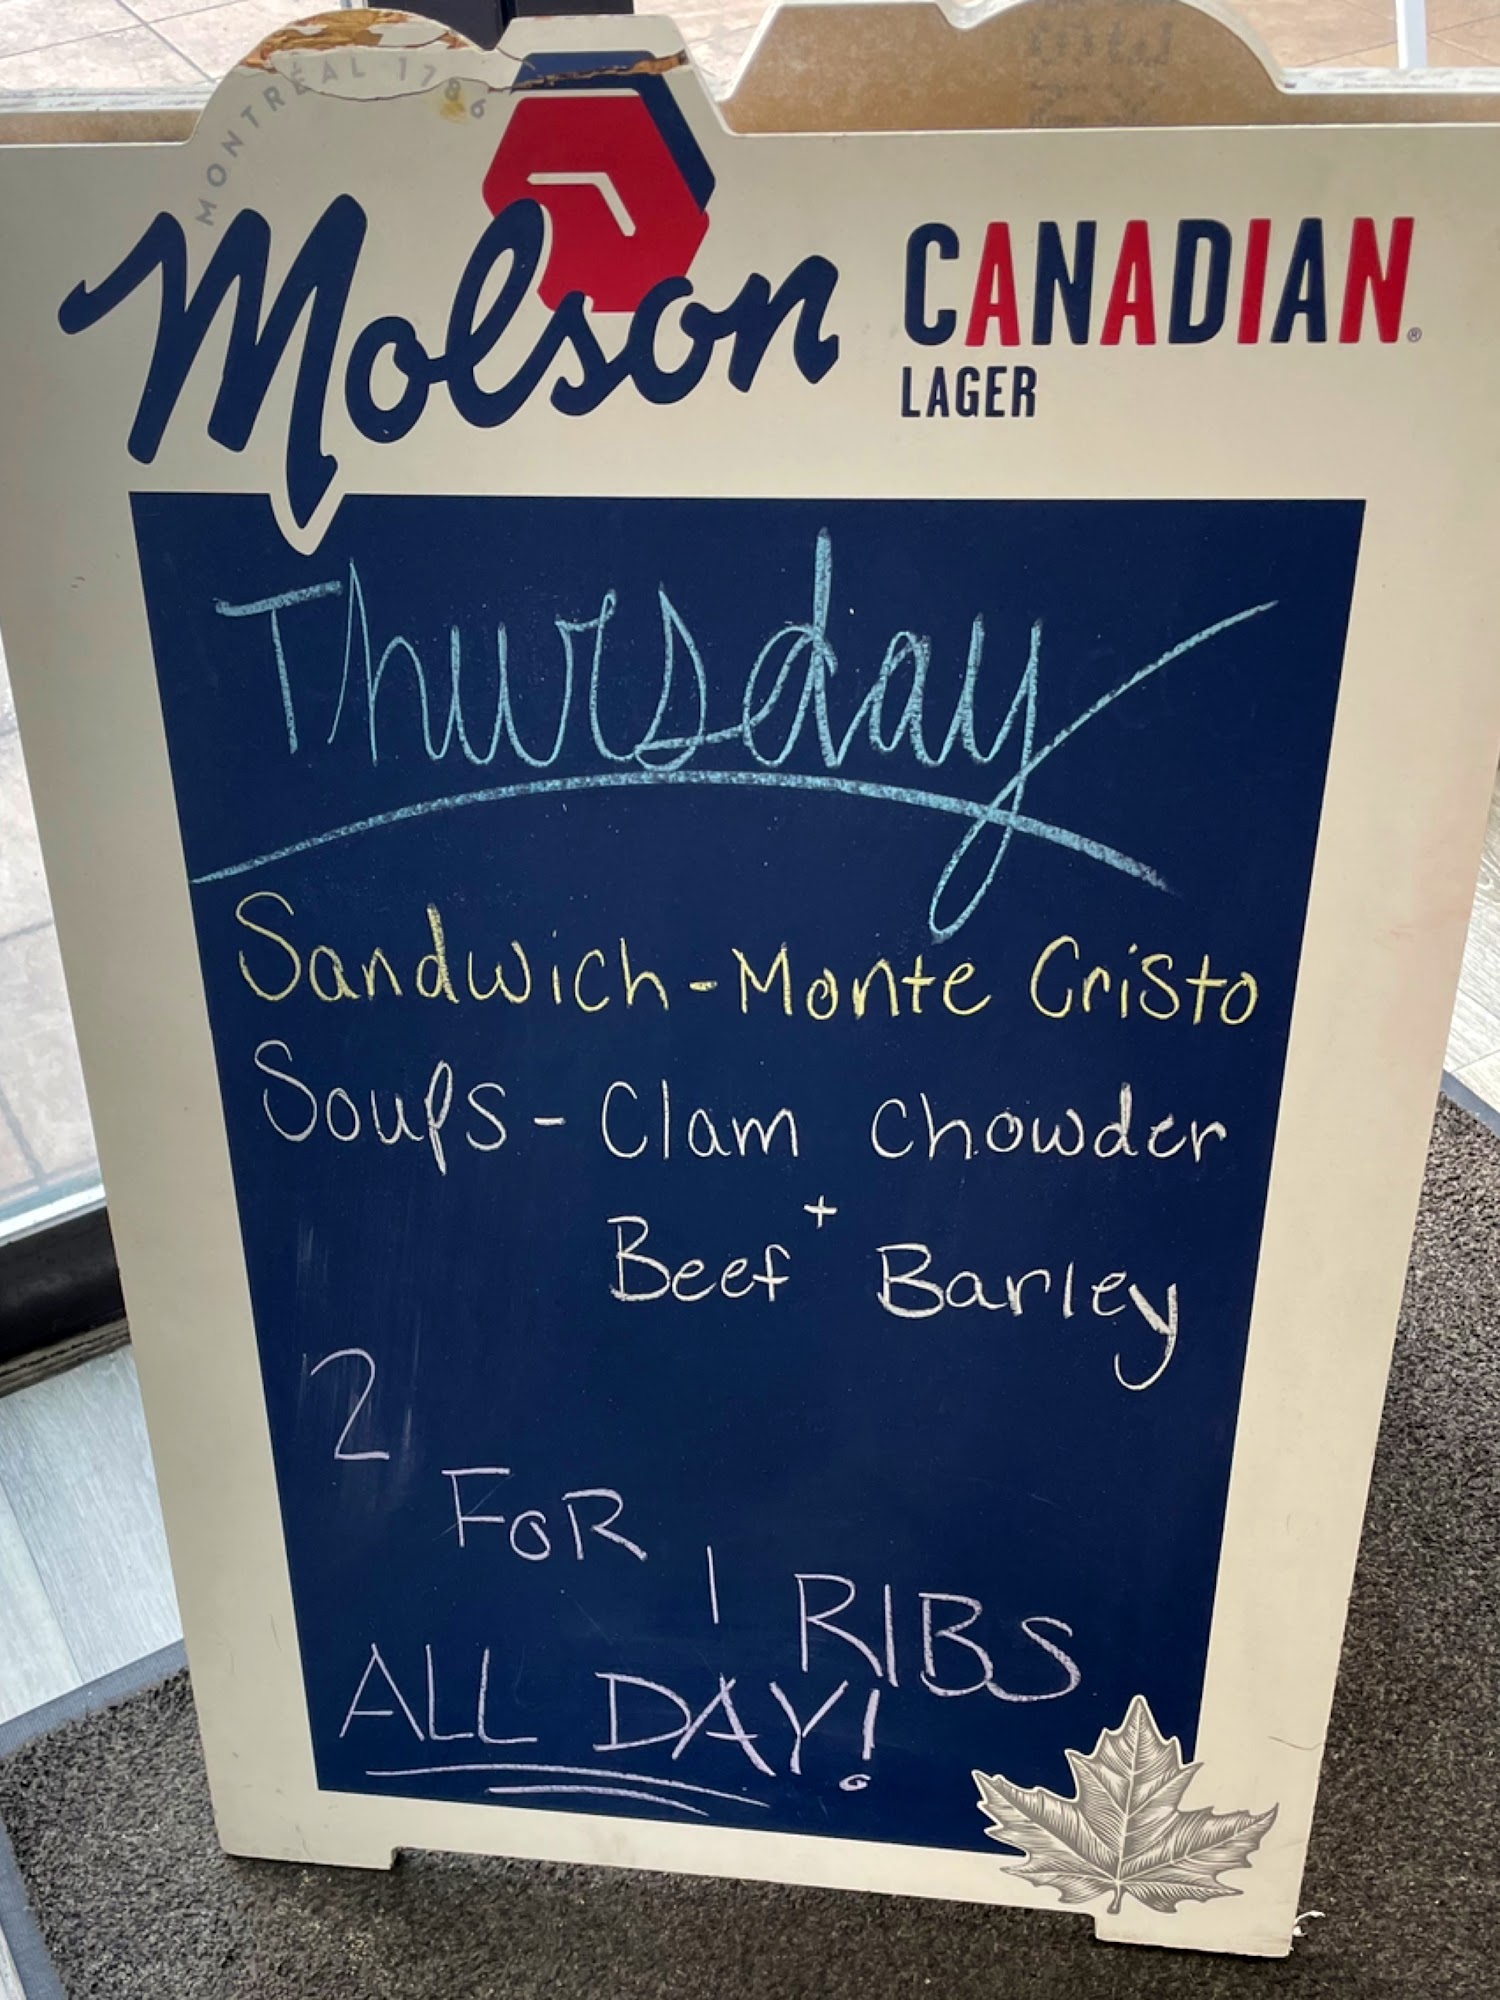 MONTRÉAL 1786
Molson CANADIAN®
LAGER
Thursday
Sandwich - Monte Cristo
Soups - Clam Chowder
+
Beef Barley
2
FOR
1 RIBS
ALL DAY!